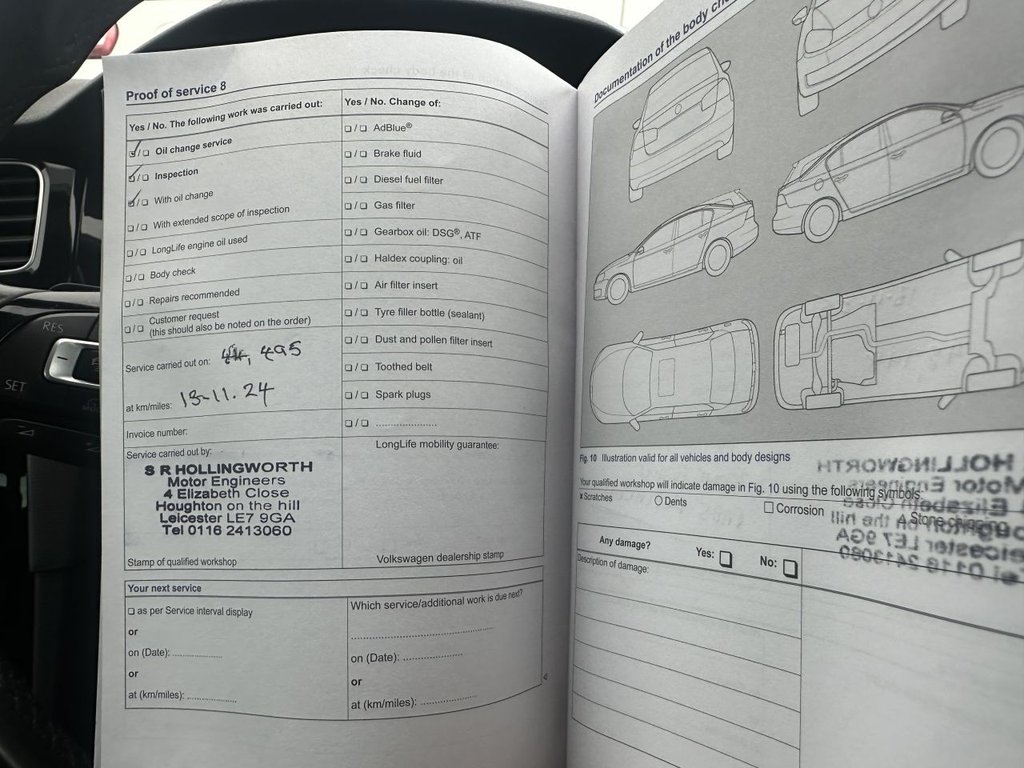 Proof of service 8
Yes / No. The following work was carried out:
☑/☐ Oil change service
☑/☐ Inspection
☑/☐ With oil change
☐/☐ With extended scope of inspection
☐/☐ LongLife engine oil used
☐/☐ Body check
☐/☐ Repairs recommended
☐/☐ Customer request
(this should also be noted on the order)
Service carried out on: , 495
at km/miles: 13-11.24
Invoice number:
Service carried out by:
S R HOLLINGWORTH
Motor Engineers
4 Elizabeth Close
Houghton on the hill
Leicester LE7 9GA
Tel 0116 2413060
Stamp of qualified workshop
Yes / No. Change of:
☐/☐ AdBlue®
☐/☐ Brake fluid
☐/☐ Diesel fuel filter
☐/☐ Gas filter
☐/☐ Gearbox oil: DSG®, ATF
☐/☐ Haldex coupling: oil
☐/☐ Air filter insert
☐/☐ Tyre filler bottle (sealant)
☐/☐ Dust and pollen filter insert
☐/☐ Toothed belt
☐/☐ Spark plugs
☐/☐ ......................
LongLife mobility guarantee:
Volkswagen dealership stamp
Your next service
☐ as per Service interval display
or
on (Date): ..................
or
at (km/miles): ..................
Which service/additional work is due next?
..................................................
on (Date): .....................
or
at (km/miles): ....................
Documentation of the body
Fig. 10 Illustration valid for all vehicles and body designs
Your qualified workshop will indicate damage in Fig. 10 using the following symbols:
x Scratches
○ Dents
☐ Corrosion
Any damage?
Yes: ☐
No: ☐
Description of damage:
HOLLINGWORTH
Motor Engineers
RES
SET